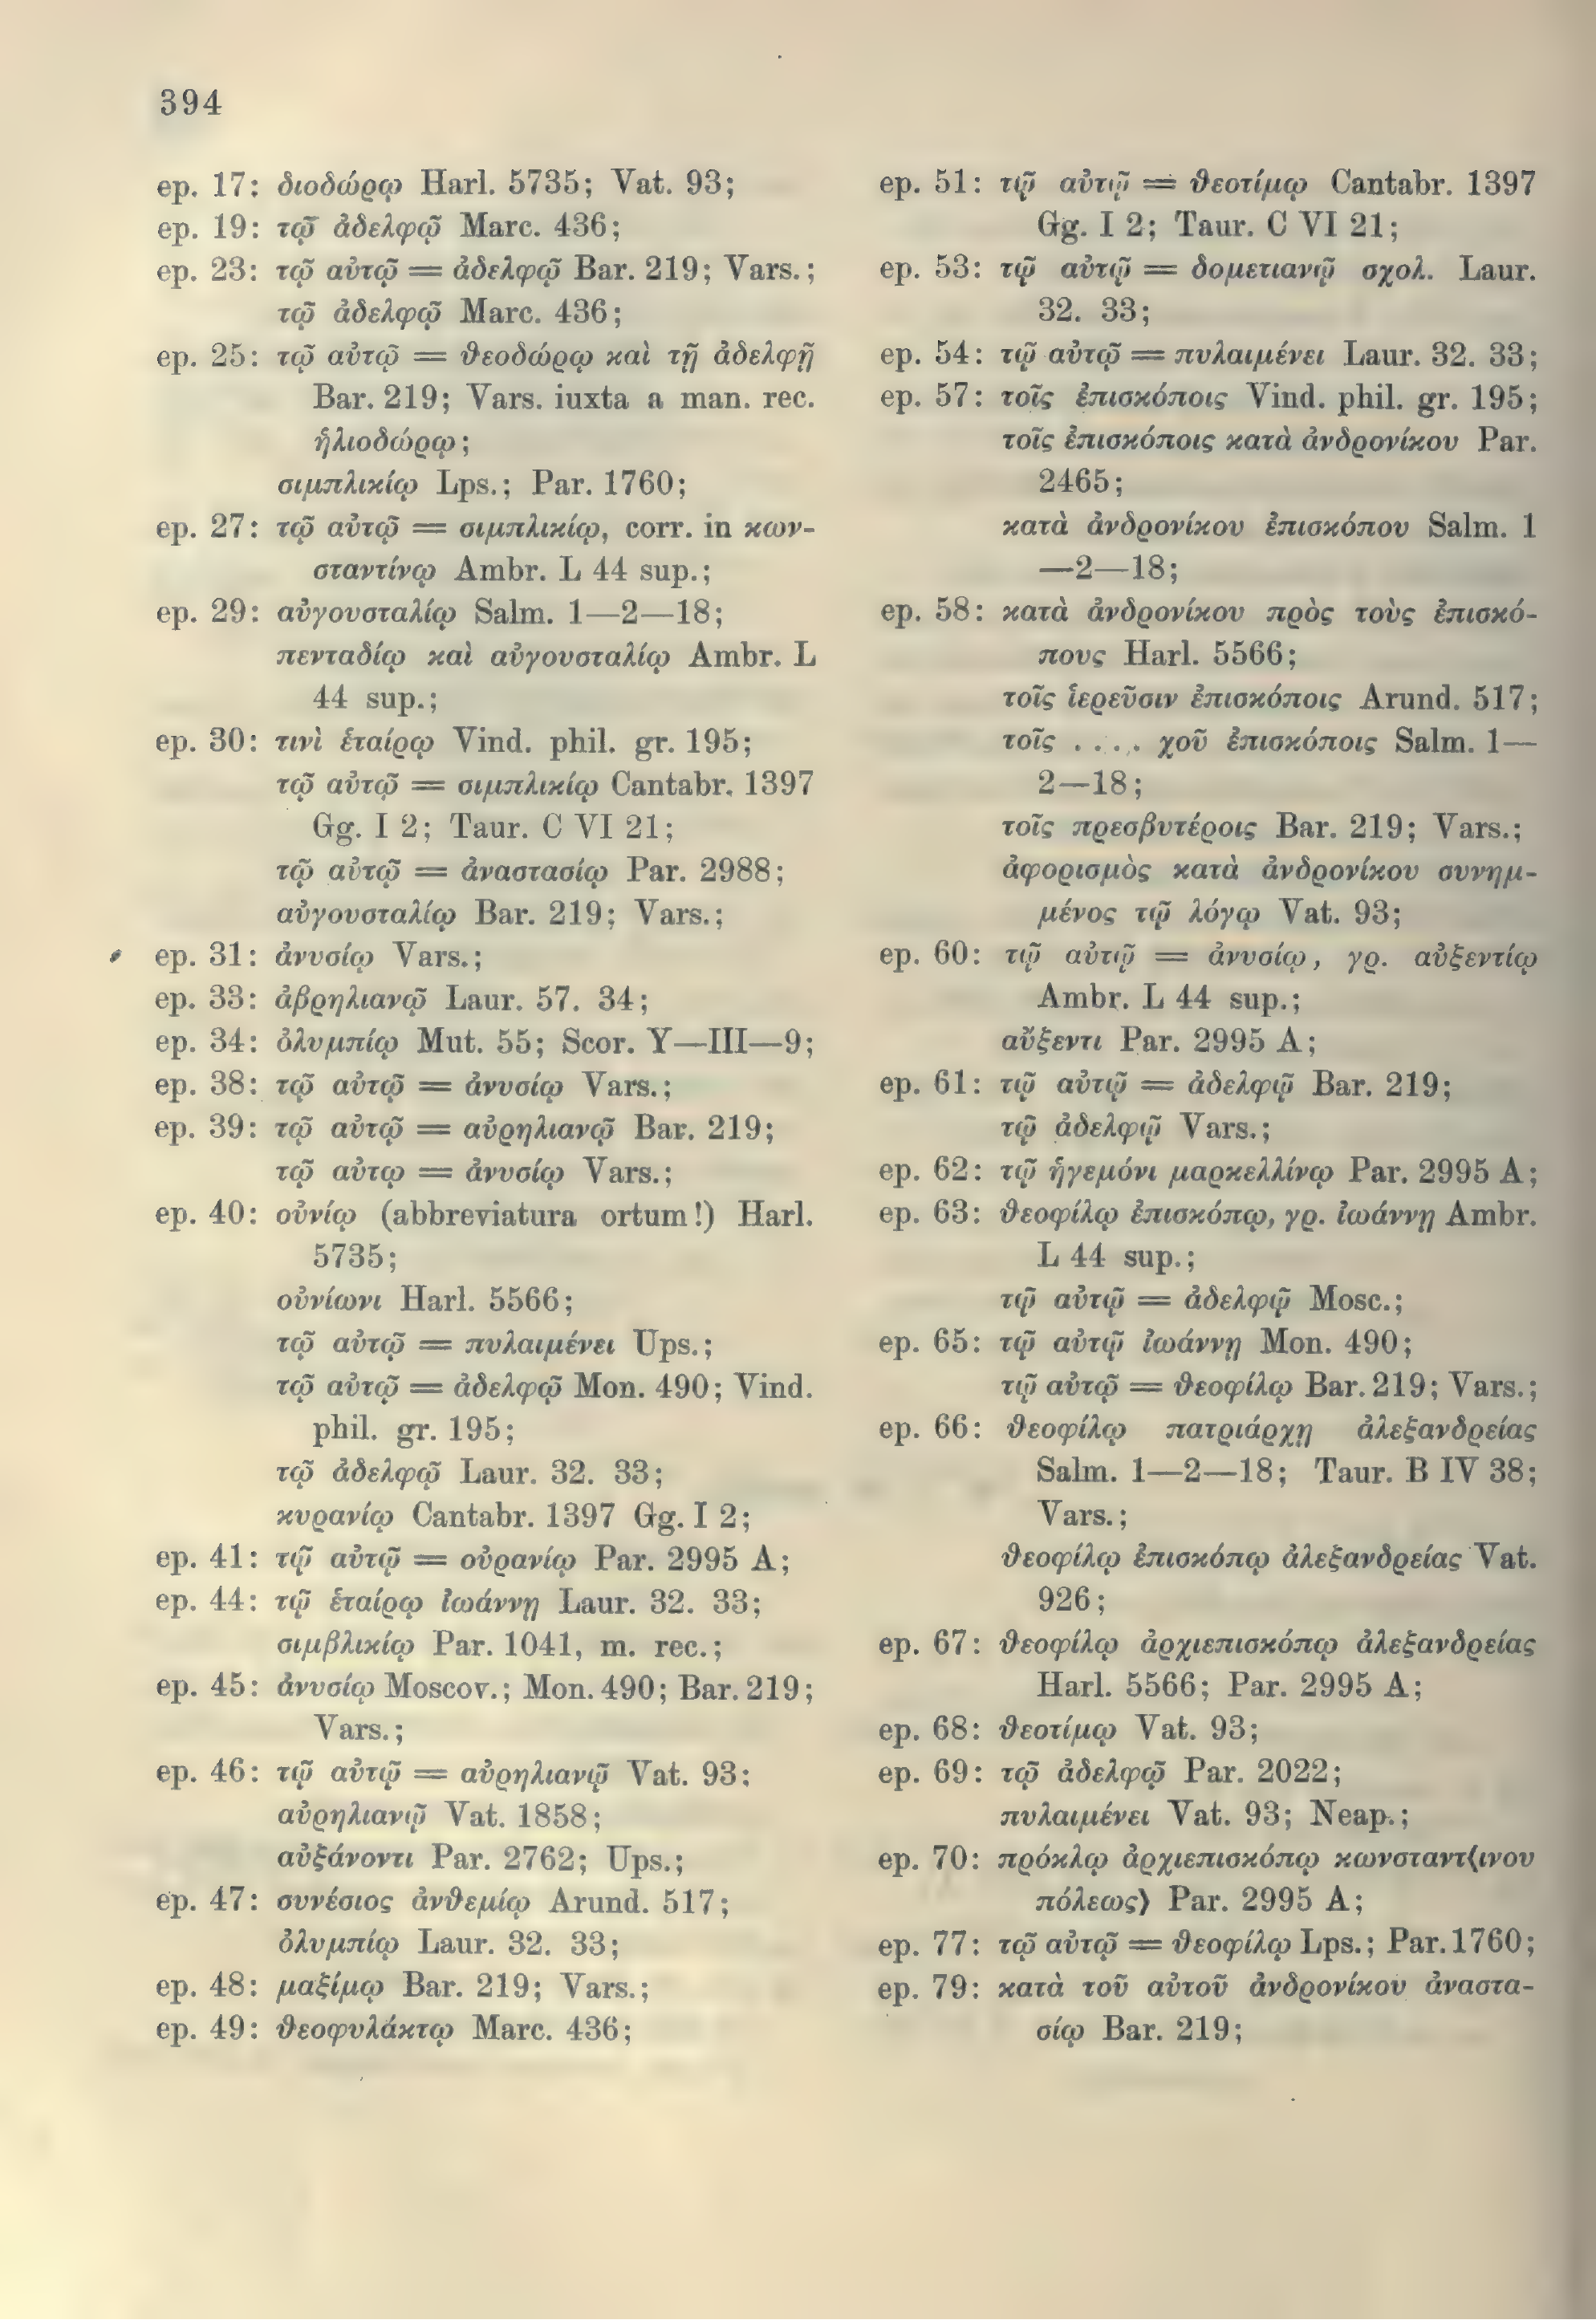 394
ep. 17: διοδώρῳ Harl. 5735; Vat. 93;
ep. 19: τῷ ἀδελφῷ Marc. 436;
ep. 23: τῷ αὐτῷ = ἀδελφῷ Bar. 219; Vars.;
τῷ ἀδελφῷ Marc. 436;
ep. 25: τῷ αὐτῷ = θεοδώρῳ καὶ τῇ ἀδελφῇ
Bar. 219; Vars. iuxta a man. rec.
ἡλιοδώρῳ;
σιμπλικίῳ Lps.; Par. 1760;
ep. 27: τῷ αὐτῷ = σιμπλικίῳ, corr. in κων-
σταντίνῳ Ambr. L 44 sup.;
ep. 29: αὐγουσταλίῳ Salm. 1—2—18;
πενταδίῳ καὶ αὐγουσταλίῳ Ambr. L
44 sup.;
ep. 30: τινὶ ἑταίρῳ Vind. phil. gr. 195;
τῷ αὐτῷ = σιμπλικίῳ Cantabr. 1397
Gg. I 2; Taur. C VI 21;
τῷ αὐτῷ = ἀναστασίῳ Par. 2988;
αὐγουσταλίῳ Bar. 219; Vars.;
ep. 31: ἀνυσίῳ Vars.;
ep. 33: ἀβρηλιανῷ Laur. 57. 34;
ep. 34: ὀλυμπίῳ Mut. 55; Scor. Y—III—9;
ep. 38: τῷ αὐτῷ = ἀνυσίῳ Vars.;
ep. 39: τῷ αὐτῷ = αὐρηλιανῷ Bar. 219;
τῷ αὐτῳ = ἀνυσίῳ Vars.;
ep. 40: οὐνίῳ (abbreviatura ortum!) Harl.
5735;
οὐνίωνι Harl. 5566;
τῷ αὐτῷ = πυλαιμένει Ups.;
τῷ αὐτῷ = ἀδελφῷ Mon. 490; Vind.
phil. gr. 195;
τῷ ἀδελφῷ Laur. 32. 33;
κυρανίῳ Cantabr. 1397 Gg. I 2;
ep. 41: τῷ αὐτῷ = οὐρανίῳ Par. 2995 A;
ep. 44: τῷ ἑταίρῳ ἰωάννῃ Laur. 32. 33;
σιμβλικίῳ Par. 1041, m. rec.;
ep. 45: ἀνυσίῳ Moscov.; Mon. 490; Bar. 219;
Vars.;
ep. 46: τῷ αὐτῷ = αὐρηλιανῷ Vat. 93;
αὐρηλιανῷ Vat. 1858;
αὐξάνοντι Par. 2762; Ups.;
ep. 47: συνέσιος ἀνθεμίῳ Arund. 517;
ὀλυμπίῳ Laur. 32. 33;
ep. 48: μαξίμῳ Bar. 219; Vars.;
ep. 49: θεοφυλάκτῳ Marc. 436;
ep. 51: τῷ αὐτῷ = θεοτίμῳ Cantabr. 1397
Gg. I 2; Taur. C VI 21;
ep. 53: τῷ αὐτῷ = δομετιανῷ σχολ. Laur.
32. 33;
ep. 54: τῷ αὐτῷ = πυλαιμένει Laur. 32. 33;
ep. 57: τοῖς ἐπισκόποις Vind. phil. gr. 195;
τοῖς ἐπισκόποις κατὰ ἀνδρονίκου Par.
2465;
κατὰ ἀνδρονίκου ἐπισκόπου Salm. 1
—2—18;
ep. 58: κατὰ ἀνδρονίκου πρὸς τοὺς ἐπισκό-
πους Harl. 5566;
τοῖς ἱερεῦσιν ἐπισκόποις Arund. 517;
τοῖς .... χοῦ ἐπισκόποις Salm. 1—
2—18;
τοῖς πρεσβυτέροις Bar. 219; Vars.;
ἀφορισμὸς κατὰ ἀνδρονίκου συνημ-
μένος τῷ λόγῳ Vat. 93;
ep. 60: τῷ αὐτῷ = ἀνυσίῳ, γρ. αὐξεντίῳ
Ambr. L 44 sup.;
αὔξεντι Par. 2995 A;
ep. 61: τῷ αὐτῷ = ἀδελφῷ Bar. 219;
τῷ ἀδελφῷ Vars.;
ep. 62: τῷ ἡγεμόνι μαρκελλίνῳ Par. 2995 A;
ep. 63: θεοφίλῳ ἐπισκόπῳ, γρ. ἰωάννῃ Ambr.
L 44 sup.;
τῷ αὐτῷ = ἀδελφῷ Mosc.;
ep. 65: τῷ αὐτῷ ἰωάννῃ Mon. 490;
τῷ αὐτῷ = θεοφίλῳ Bar. 219; Vars.;
ep. 66: θεοφίλῳ πατριάρχῃ ἀλεξανδρείας
Salm. 1—2—18; Taur. B IV 38;
Vars.;
θεοφίλῳ ἐπισκόπῳ ἀλεξανδρείας Vat.
926;
ep. 67: θεοφίλῳ ἀρχιεπισκόπῳ ἀλεξανδρείας
Harl. 5566; Par. 2995 A;
ep. 68: θεοτίμῳ Vat. 93;
ep. 69: τῷ ἀδελφῷ Par. 2022;
πυλαιμένει Vat. 93; Neap.;
ep. 70: πρόκλῳ ἀρχιεπισκόπῳ κωνσταντ⟨ινου
πόλεως⟩ Par. 2995 A;
ep. 77: τῷ αὐτῷ = θεοφίλῳ Lps.; Par. 1760;
ep. 79: κατὰ τοῦ αὐτοῦ ἀνδρονίκου ἀναστα-
σίῳ Bar. 219;